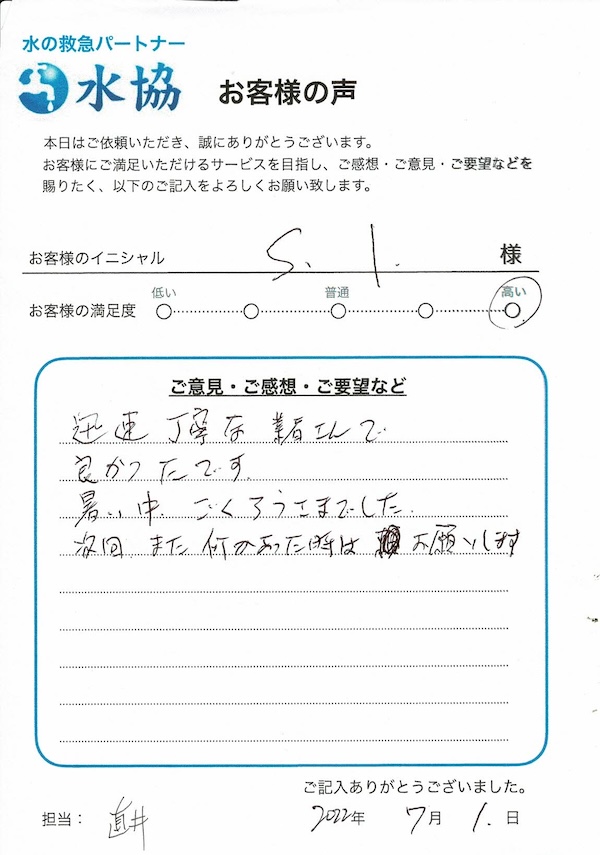 水の救急パートナー
水協 お客様の声
本日はご依頼いただき、誠にありがとうございます。
お客様にご満足いただけるサービスを目指し、ご感想・ご意見・ご要望などを
賜りたく、以下のご記入をよろしくお願い致します。
お客様のイニシャル S. I. 様
低い 普通 高い
お客様の満足度
ご意見・ご感想・ご要望など
迅速 丁寧な 業者さんで
良かったです。
暑い中、ごくろうさまでした。
次回 また 何かあった時は お願いします
ご記入ありがとうございました。
担当： 直井 2022年 7月 1.日